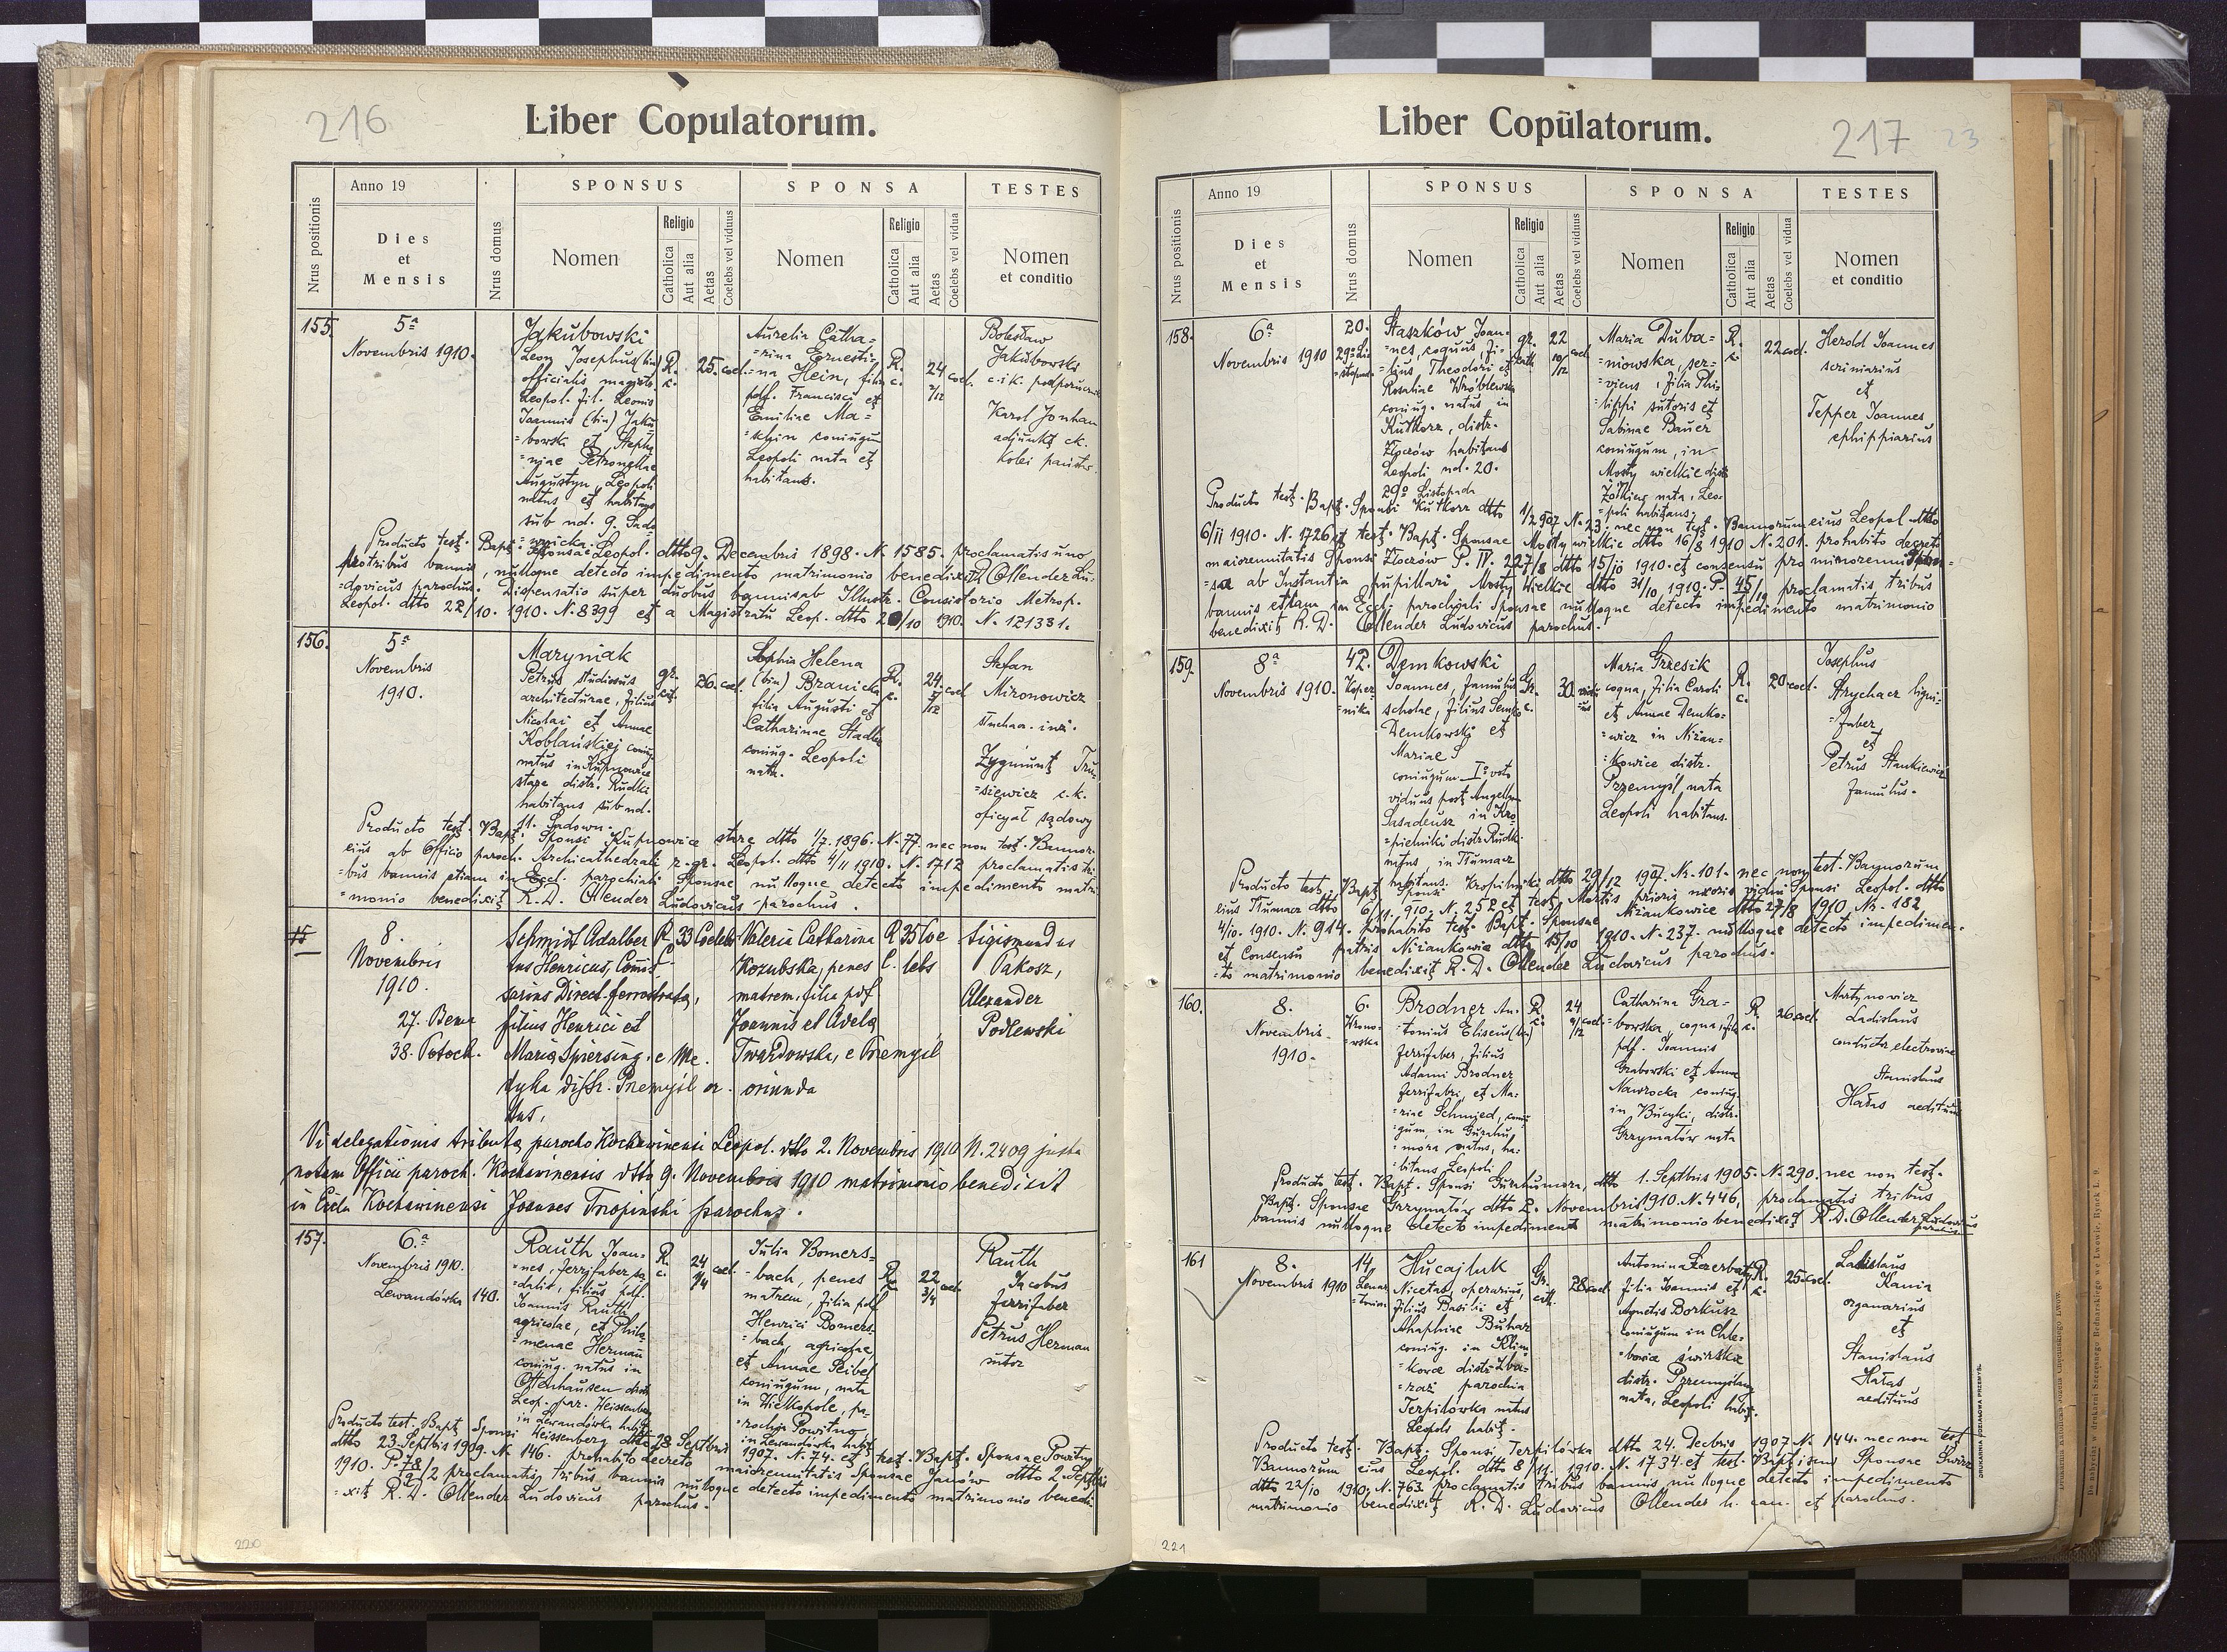 216
Liber Copulatorum.
Nrus positionis
Anno 19
Dies
et
Mensis
Nrus domus
SPONSUS
Nomen
Religio
Catholica
Aut alia
Aetas
Coelebs vel viduus
SPONSA
Nomen
Religio
Catholica
Aut alia
Aetas
Coelebs vel vidua
TESTES
Nomen
et conditio
155.
5ª
Novembris 1910.
Jakubowski
Leon Josephus (bin)
officialis magistr.
Leopol. fil. Leonis
Joannis (bin) Jaku=
=bowski et Stepha=
=niae Petronellae
Augustyn, Leopoli
natus et habitans
sub nd. 9. Sado=
=wnicka.
R.
c.
25.
coel.
Aurelia Catha=
=rina Ernesti=
=na Hein, filia
pdf. Francisci et
Emiliae Ma=
=schin coniugum
Leopoli nata et
habitans.
R.
c.
24
2/12
coel.
Bolesław
Jakubowski
c. i k. podporucznik
Karol Jonhan
adjunkt ck.
kolei państw.
Producto test. Bapt. Sponsae Leopol. dtto 9. Decembris 1898. N. 1585. proclamatis uno
pro tribus bannis, nulloque detecto impedimento matrimonio benedixit Ollender Lu=
=dovicus parochus. Dispensatio super duobus bannis ab Illustr. Consistorio Metrop.
Leopol. dtto 22/10. 1910. N. 8399 et a Magistratu Leop. dtto 20/10 1910. N. 121331.
156.
5ª
Novembris
1910.
Maryniak
Petrus studiosus
architecturae, filius
Nicolai et Annae
Koblańskiej coniug.
natus in Kupnowice
stare distr. Rudki
habitans sub nd.
11. Sadown.
gr.
cat.
26.
coel.
Sophia Helena
(bin) Branicka
filia Augusti et
Catharinae Stadler
coniug. Leopoli
nata.
R.
c.
24.
5/12
coel.
Stefan
Mironowicz
słuchacz inż.
Zygmunt Tru=
=siewicz c. k.
oficyał sądowy
Producto test. Bapt. Sponsi Kupnowice stare dtto 1/7. 1896. N. 77. nec non test. Bannor.
eius ab Officio paroch. Archicathedrali r. gr. Leopol. dtto 4/11 1910. N. 1712 proclamatis tri=
=bus bannis etiam in Eccl. parochiali Sponsae nulloque detecto impedimento matri=
=monio benedixit R. D. Ollender Ludovicus parochus.
8.
Novembris
1910.
27. Bema
38. Potock.
Schmidt Adalber=
tus Henricus, Comis=
sarius Direct. ferrostratæ,
filius Henrici et
Maria Spiersing, e Me.
dyka distr. Przemyśl or.
tus,
R.
C.
33
Coelebs
Valeria Catharina
Kozubska, penes
matrem, filia pdf
Joannis et Adela
Twardowska, e Przemyśl
oriunda
R
C.
35
Coe
lebs
Sigismundus
Pakosz,
Alexander
Podlewski
Vi delegationis tributæ parocho Kochawinensi Leopol. dtto 2. Novembris 1910 N. 2409 juxta
notam Officii paroch. Kochawinensis dtto 9. Novembris 1910 matrimonio benedixit
in Eccla Kochawinensi Joannes Trzopiński parochus.
157.
6.ª
Novembris 1910.
Lewandówka
140.
Rauth Joan=
=nes, ferrifaber so=
=dalis, filius pdf.
Joannis Rauth
agricolae, et Philo=
=menae Herman
coniug. natus in
Ottenhausen distr.
Leop. par. Weissenberg
in Lewandówka habit.
R.
c.
24
1/4
coel.
Julia Bomers=
=bach, penes
matrem, filia pdf.
Henrici Bomers=
=bach, agricolae,
et Annae Seibel
coniugum, nata
in Wielkopole, pa=
=rochia Powitno
in Lewandówka habit.
R.
22
3/4
coel.
Rauth
Jacobus
ferrifaber
Petrus Herman
sutor
Producto test. Bapt. Sponsi Weissenberg dtto 28 Septbris 1907. N. 74. et test. Bapt. Sponsae Powitno
dtto 23. Septbris 1909. N. 146. prohabito decreto maiorennitatis Sponsae Janów dtto 2. Septbris
1910. P. 78/2 proclamatis tribus bannis nulloque detecto impedimento matrimonio benedi=
=xit R. D. Ollender Ludovicus parochus.
220
217
23
Liber Copulatorum.
Nrus positionis
Anno 19
Dies
et
Mensis
Nrus domus
SPONSUS
Nomen
Religio
Catholica
Aut alia
Aetas
Coelebs vel viduus
SPONSA
Nomen
Religio
Catholica
Aut alia
Aetas
Coelebs vel vidua
TESTES
Nomen
et conditio
158.
6ª
Novembris 1910
20.
29º Li=
=stopada
Staszków Joan=
=nes, coquus, fi=
=lius Theodori et
Rosaliae Wróblewska
coniug. natus in
Kutkorz, distr.
Złoczów habitans
Leopoli nd. 20.
29º Listopada
gr.
cath.
22
10/12
coel.
Maria Duba=
=niowska, ser=
=viens, filia Phi=
=lippi sutoris et
Sabinae Bauer
coniugum, in
Mosty wielkie distr.
Żółkiew nata, Leo=
=poli habitans.
R.
c.
22
coel.
Herold Joannes
scriniarius
et
Tepper Joannes
ephippiarius
Producto test. Bapt. Sponsi Kutkorz dtto 1/2 907 N. 23. nec non test. Bannorum eius Leopol. dtto
6/11 1910. N. 1726 et test. Bapt. Sponsae Mosty wielkie dtto 16/8 1910 N. 201. prohabito decreto
maiorennitatis Sponsi Złoczów P. IV. 227/8 dtto 15/10 1910. et consensu pro minorenni Spon=
=sa ab Instantia pupillari Mosty Wielkie dtto 31/10 1910. P. 45/10 proclamatis tribus
bannis etiam in Eccl. parochiali Sponsae nulloque detecto impedimento matrimonio
benedixit R. D. Ollender Ludovicus parochus.
159.
8ª
Novembris 1910.
42.
Koper=
=nika
Demkowski
Joannes, famulus
scholae, filius Semko
Demkowski et
Mariae S
coniugum Iº voto
viduus post Angellam
Sasadeusz in Kro=
=pielniki distr. Rudki
natus, in Tłumacz
habitans.
Gr.
c.
30.
vidu=
=us
Maria Grzesik
coqua, filia Caroli
et Annae Demko=
=wicz in Niżan=
=kowice distr.
Przemyśl nata
Leopoli habitans.
R.
c.
20
coel.
Josephus
Strychacz ligni=
=faber
et
Petrus Stankiewicz
famulus.
Producto test. Bapt. Sponsi Kropilniki dtto 29/12 1907. Nr. 101. nec non test. Bannorum
eius Tłumacz dtto 6/11. 910. N. 252 et test. Mortis prioris uxoris vidui Sponsi Leopol. dtto
4/10. 1910. N. 914. prohabito test. Bapt. Sponsae Niżankowice dtto 27/8 1910 Nr. 182
et Consensu patris Niżankowice dtto 15/10 1910. N. 237. nulloque detecto impedimen=
=to matrimonio benedixit R. D. Ollender Ludovicus parochus.
160.
8.
Novembris
1910.
6.
Wrono=
=wska
Brodner An=
=tonius Eliseus (bin)
ferrifaber, filius
Adami Brodner
ferrifabri, et Ma=
=riae Schmied, coniu=
=gum, in Gurahu=
=mora natus, ha=
=bitans Leopoli
R.
c.
24
9/12
coel.
Catharina Gra=
=bowska, coqua, filia
pdf. Joannis
Grabowski et Annae
Nawrocka coniug.
in Bucyki, distr.
Grzymałów nata
R.
c.
26
coel.
Martynowicz
Ladislaus
conductor electroviae
Stanislaus
Hałas aedituus
Producto test. Bapt. Sponsi Gurahumora, dtto 1. Septbris 1905. N. 290. nec non test.
Bapt. Sponsae Grzymałów dtto 2. Novembris 1910. N. 446, proclamatis tribus
bannis nulloque detecto impedimento matrimonio benedixit R. D. Ollender Ludovicus
parochus
161
8.
Novembris 1910
14,
Lenar=
=towicza
Hucajluk
Nicetas, operarius,
filius Basilii et
Ahaphiae Buhaz
coniug. in Klim=
=kowce distr. Zba=
=raż parochia
Terpiłówka natus
Leopoli habit.
Gr.
cath.
28
coel.
Antonina Szczerbaty
filia Joannis et
Agnetis Borkusz
coniugum in Chle=
=bowice świrskie
distr. Przemyślany
nata, Leopoli habit.
R.
c.
25.
coel.
Ladislaus
Kania
organarius
et
Stanislaus
Hałas
aedituus
Producto test. Bapt. Sponsi Terpiłówka dtto 24. Decbris 1907. N. 144. nec non test.
Bannorum eius Leopol. dtto 8/11. 1910. N. 1734 et test. Baptismi Sponsae Świrz
dtto 22/10 1910, N. 763. proclamatis tribus bannis, nulloque detecto impedimento
matrimonio benedixit R. D. Ludovicus Ollender h. can. et parochus.
221
DRUKARNIA UDZIAŁOWA PRZEMYŚL.
Drukarnia Katolicka Józefa Chęcińskiego Lwów.
Do nabycia w drukarni Szczęsnego Bednarskiego we Lwowie, Rynek L. 9.